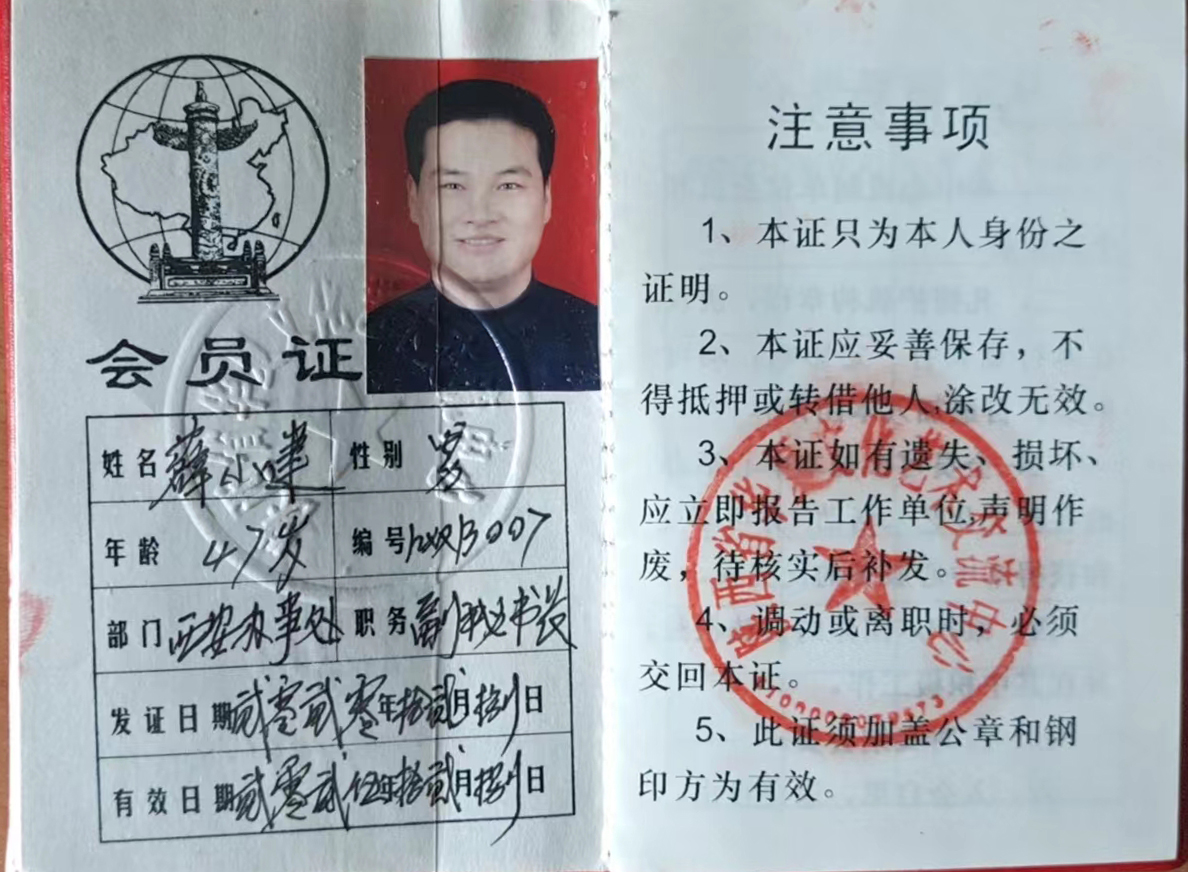 会员证
姓名 薛小建 性别 男
年龄 47岁 编号 007
部门 西安办事处 职务 副秘书长
发证日期 贰零贰零年拾贰月捌日
有效日期 贰零贰伍年拾贰月捌日
注意事项
1、本证只为本人身份之
证明。
2、本证应妥善保存，不
得抵押或转借他人,涂改无效。
3、本证如有遗失、损坏、
应立即报告工作单位,声明作
废，待核实后补发。
4、调动或离职时，必须
交回本证。
5、此证须加盖公章和钢
印方为有效。
陕西省 文化艺术交流中心